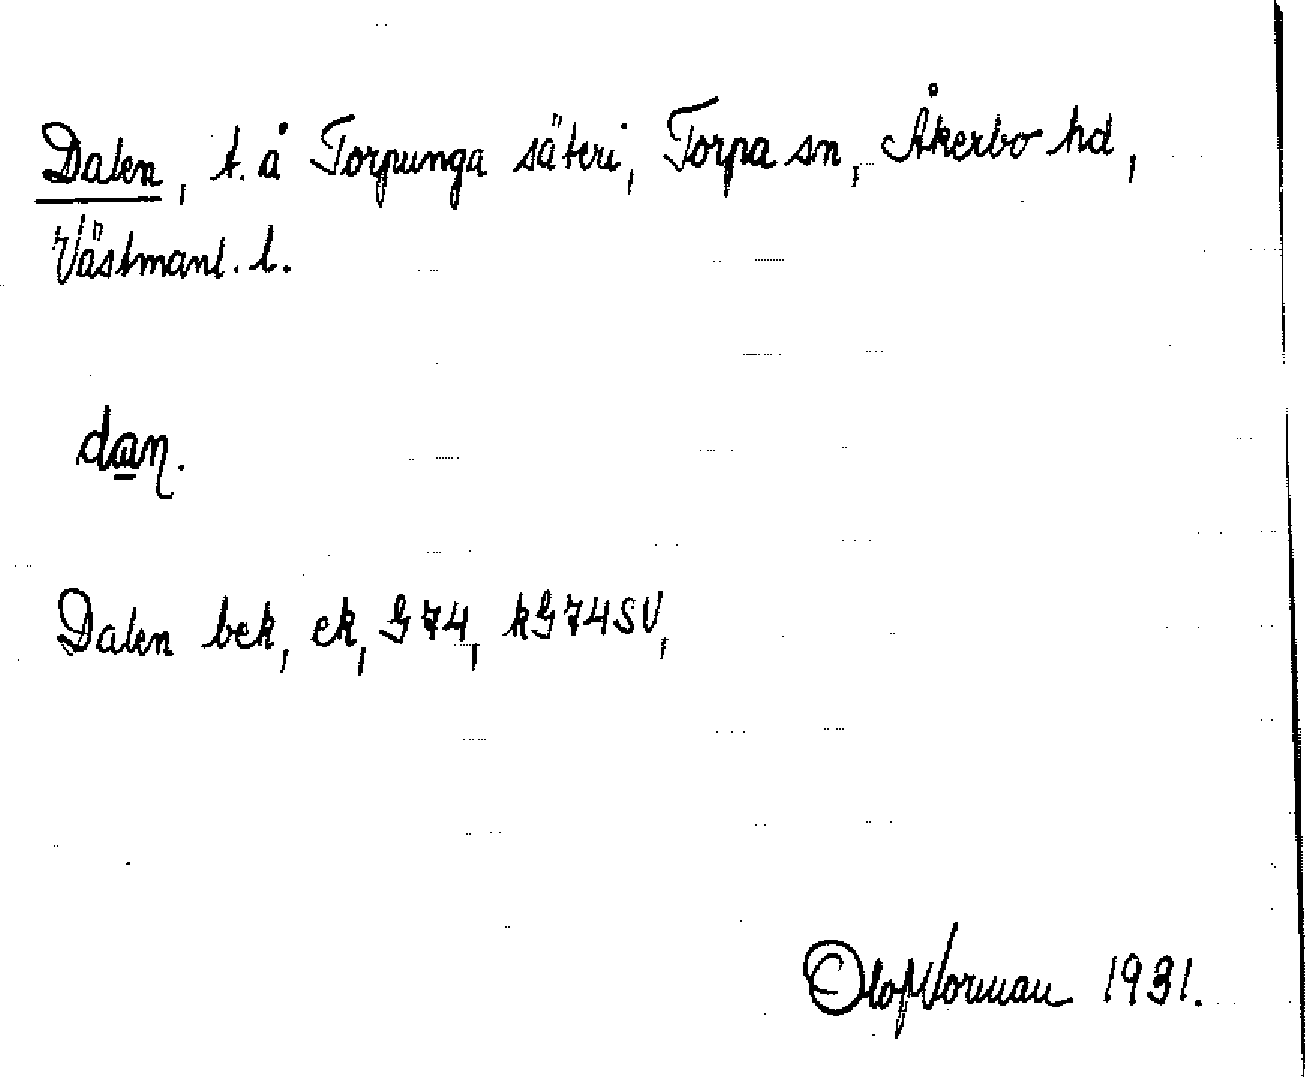 Dalen, t. å Torpunga säteri, Torpa sn, Åkerbo hd,
Västmanl. l.
dan.
Dalen bek, ek, G74, kG74SV,
Olof Norman 1931.